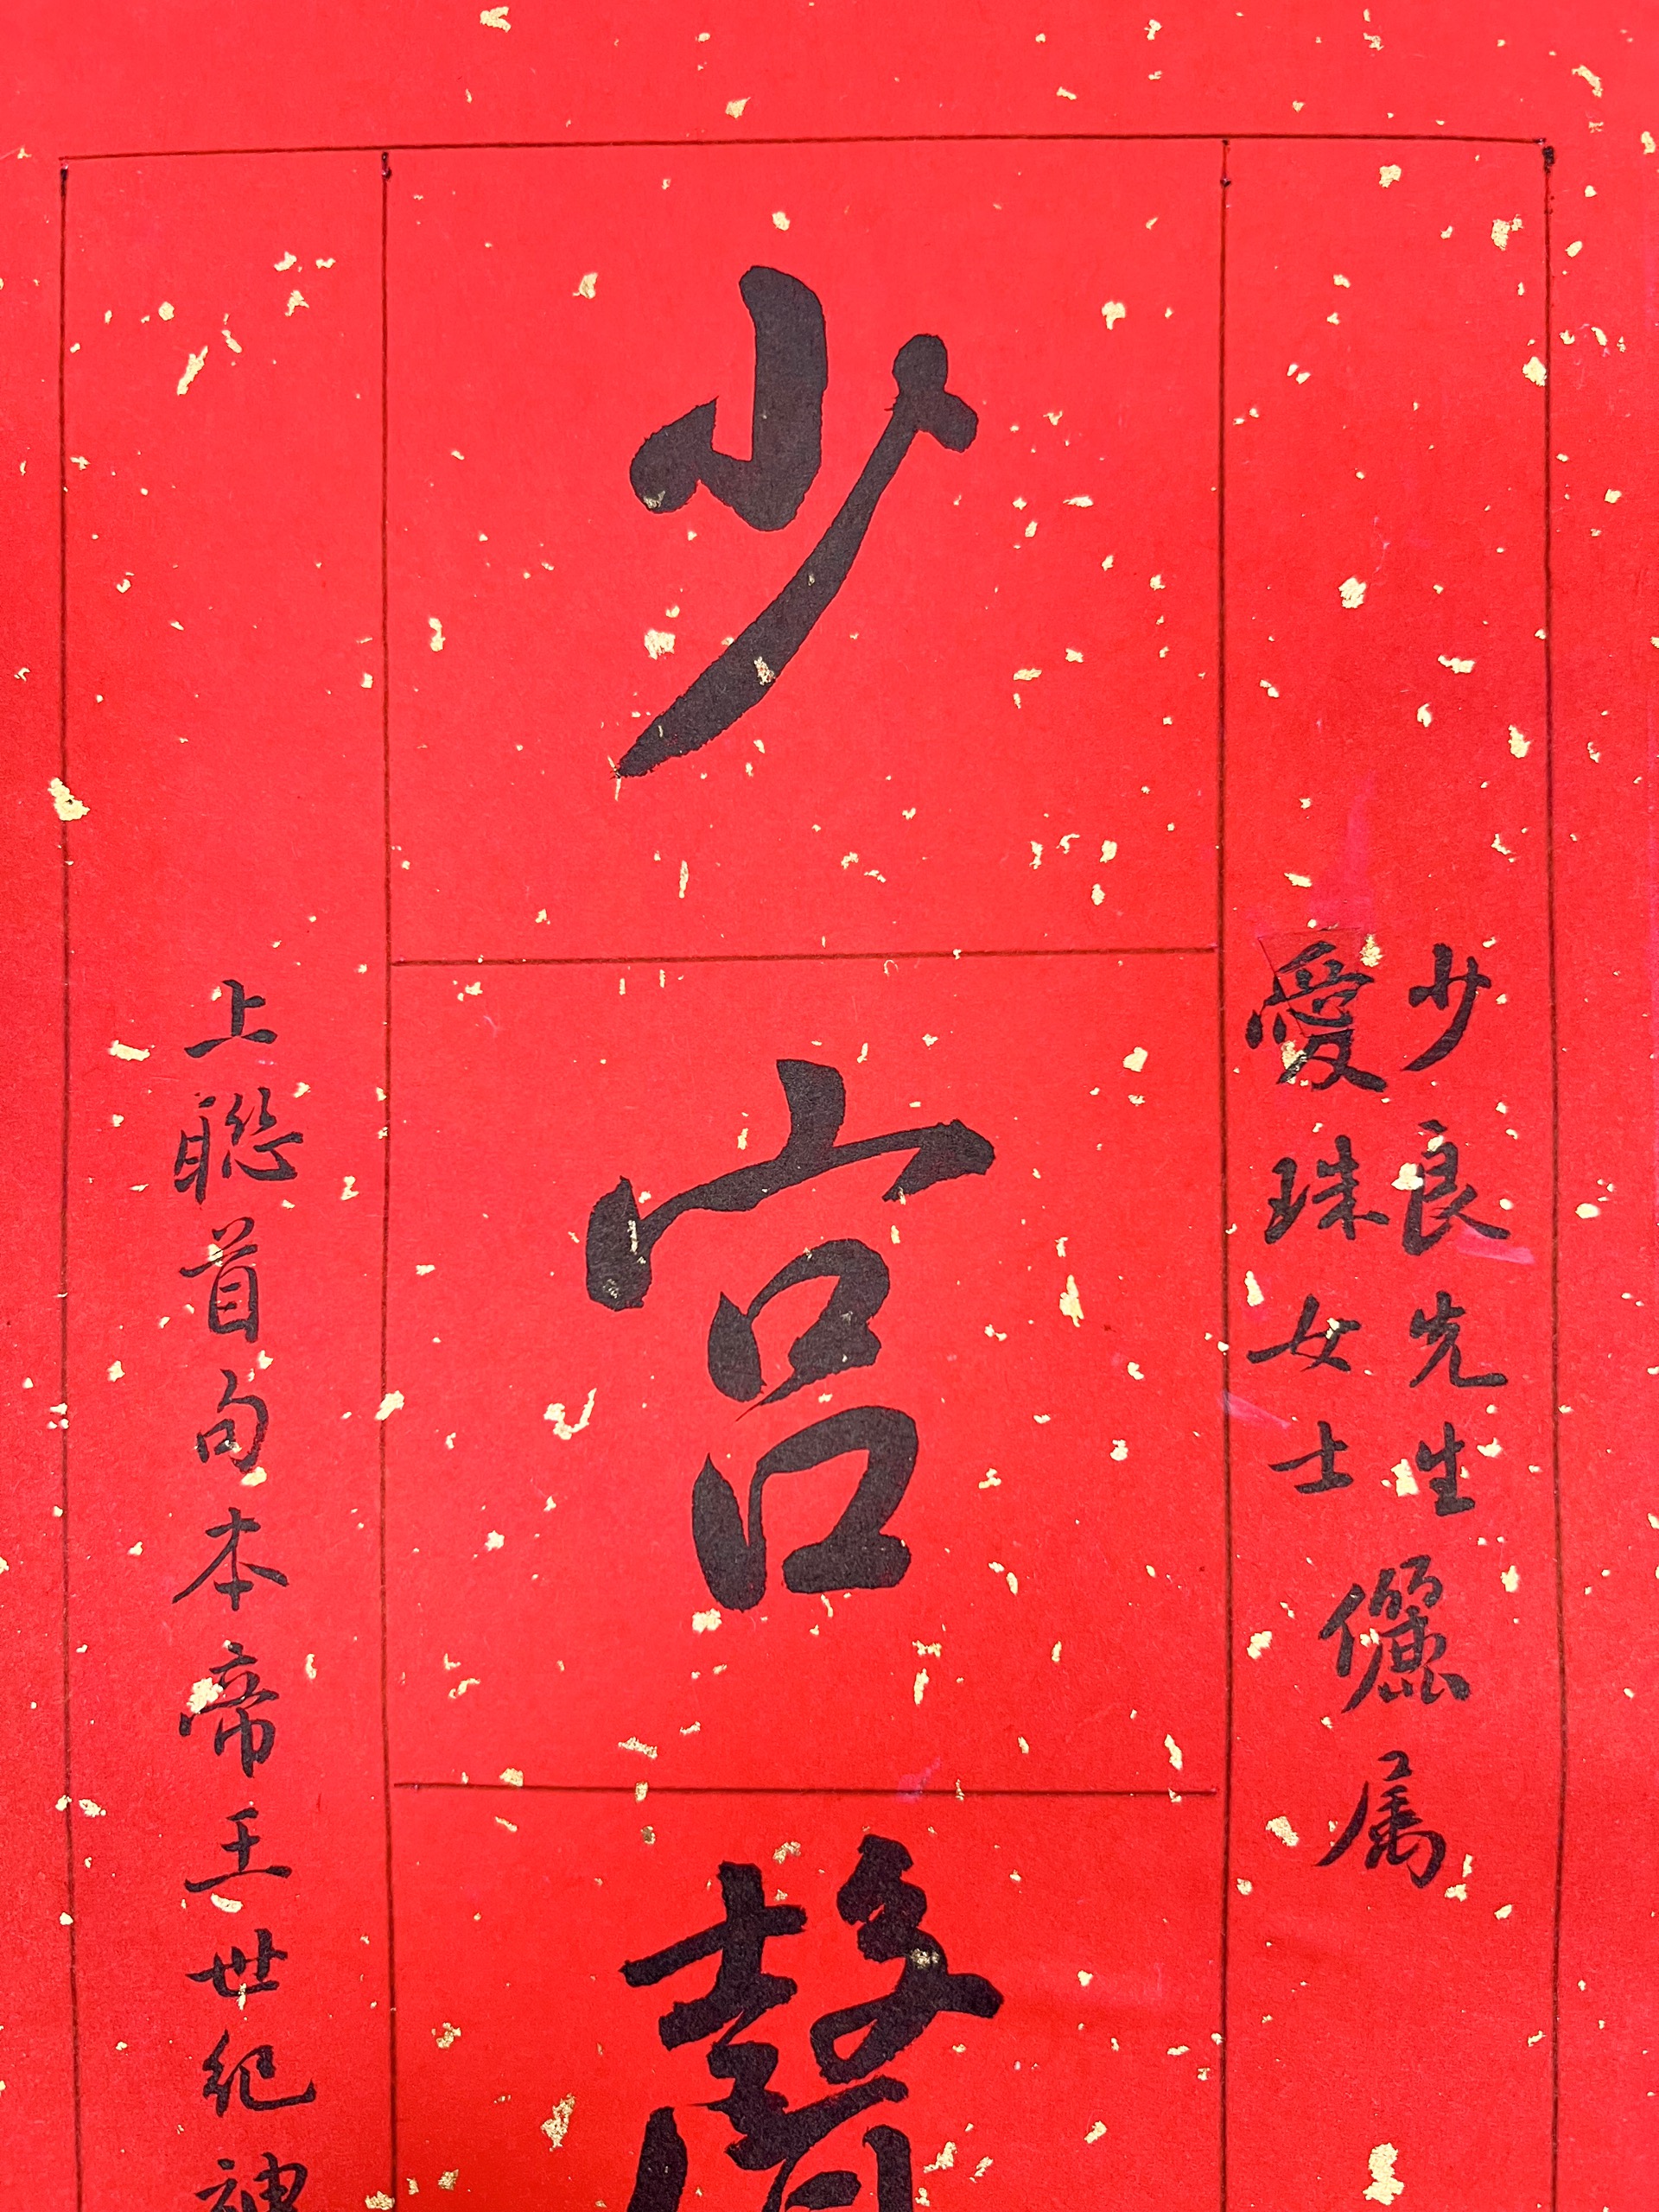 少良先生
愛珠女士
儷属
少宮聲
上聯首句本帝王世紀神